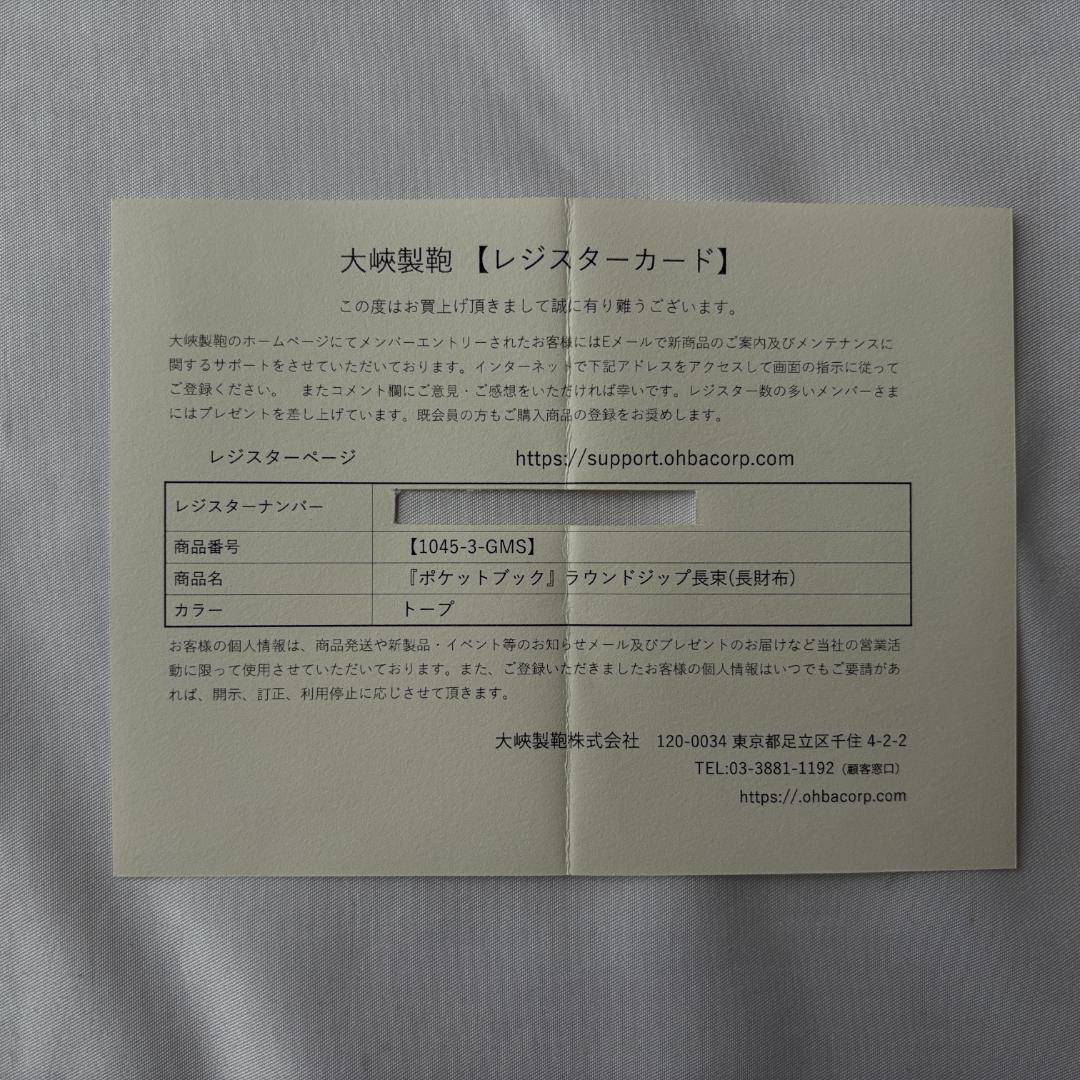 大峽製鞄 【レジスターカード】
この度はお買上げ頂きまして誠に有り難うございます。
大峽製鞄のホームページにてメンバーエントリーされたお客様にはEメールで新商品のご案内及びメンテナンスに
関するサポートをさせていただいております。インターネットで下記アドレスをアクセスして画面の指示に従って
ご登録ください。　またコメント欄にご意見・ご感想をいただければ幸いです。レジスター数の多いメンバーさま
にはプレゼントを差し上げています。既会員の方もご購入商品の登録をお奨めします。
レジスターページ　https://support.ohbacorp.com
レジスターナンバー
商品番号　【1045-3-GMS】
商品名　『ポケットブック』ラウンドジップ長束(長財布)
カラー　トープ
お客様の個人情報は、商品発送や新製品・イベント等のお知らせメール及びプレゼントのお届けなど当社の営業活
動に限って使用させていただいております。また、ご登録いただきましたお客様の個人情報はいつでもご要請があ
れば、開示、訂正、利用停止に応じさせて頂きます。
大峽製鞄株式会社　120-0034 東京都足立区千住 4-2-2
TEL:03-3881-1192（顧客窓口）
https://.ohbacorp.com